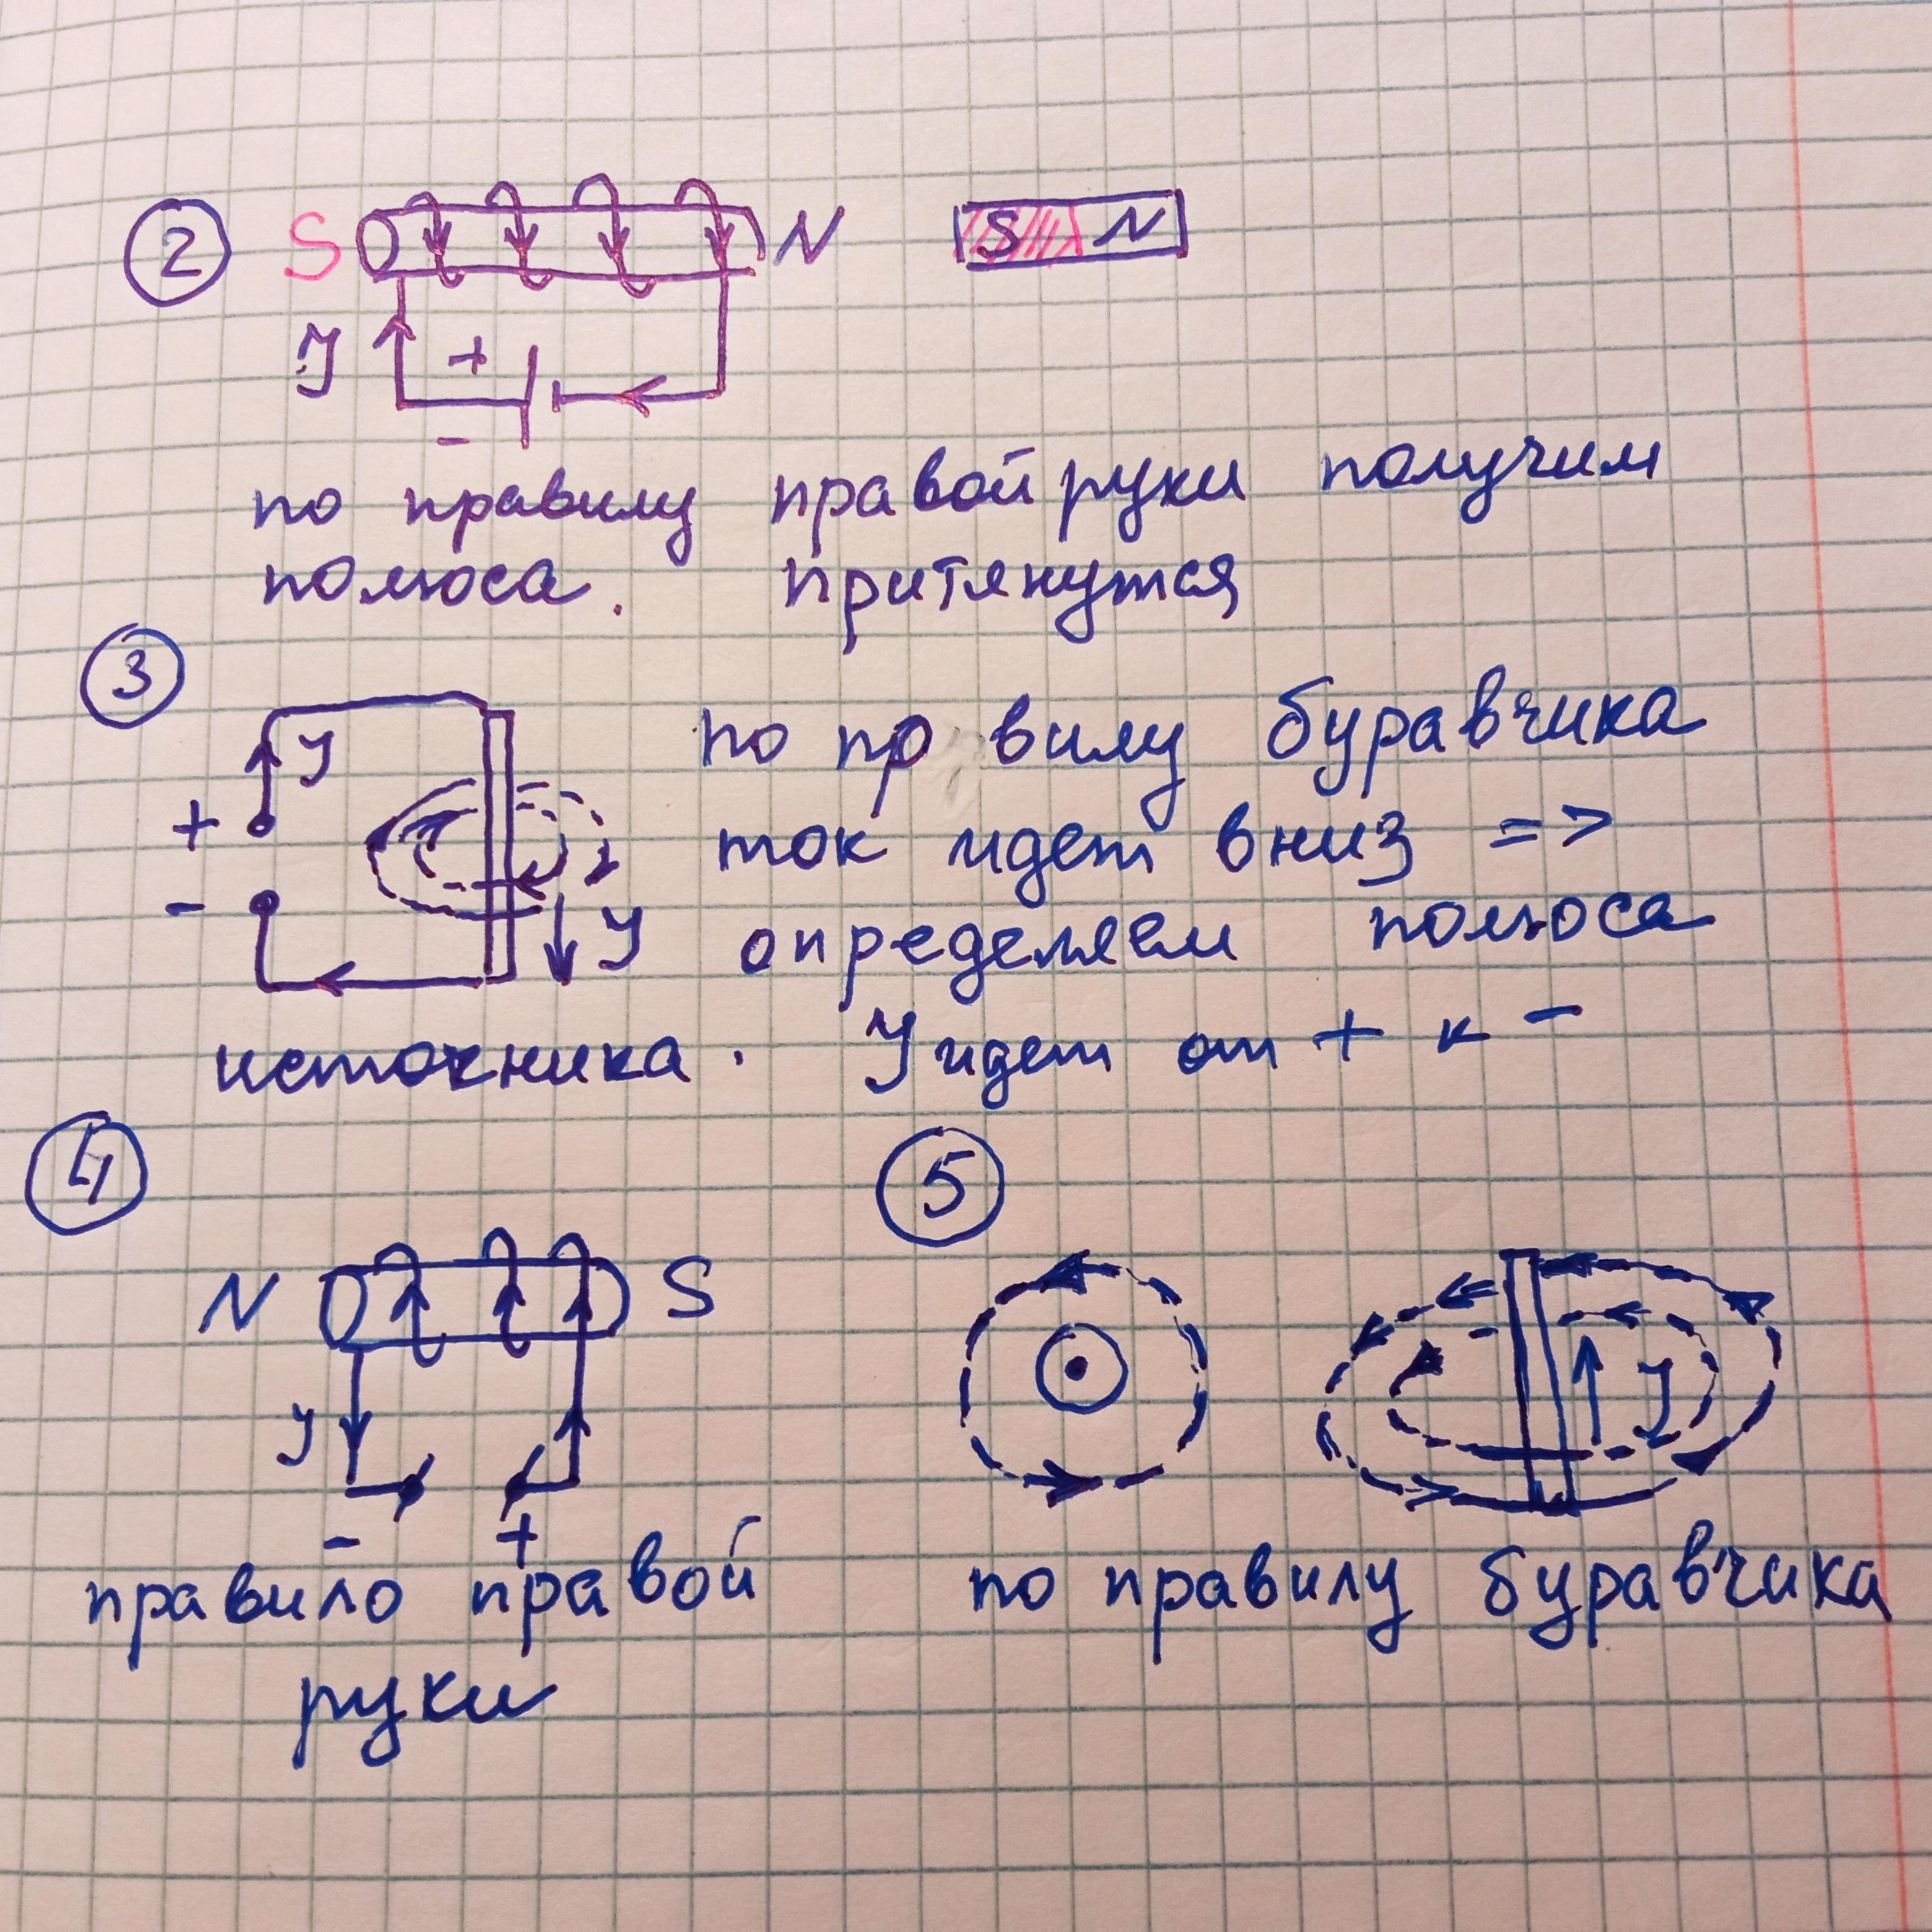 2 S N S N
J + -
по правилу правой руки получим
полюса. притянутся
3
J по пр вилу буравчика
+ ток идет вниз =>
- J определяем полюса
источника. J идет от + к -
4 5
N S
J J
- +
правило правой по правилу буравчика
руки